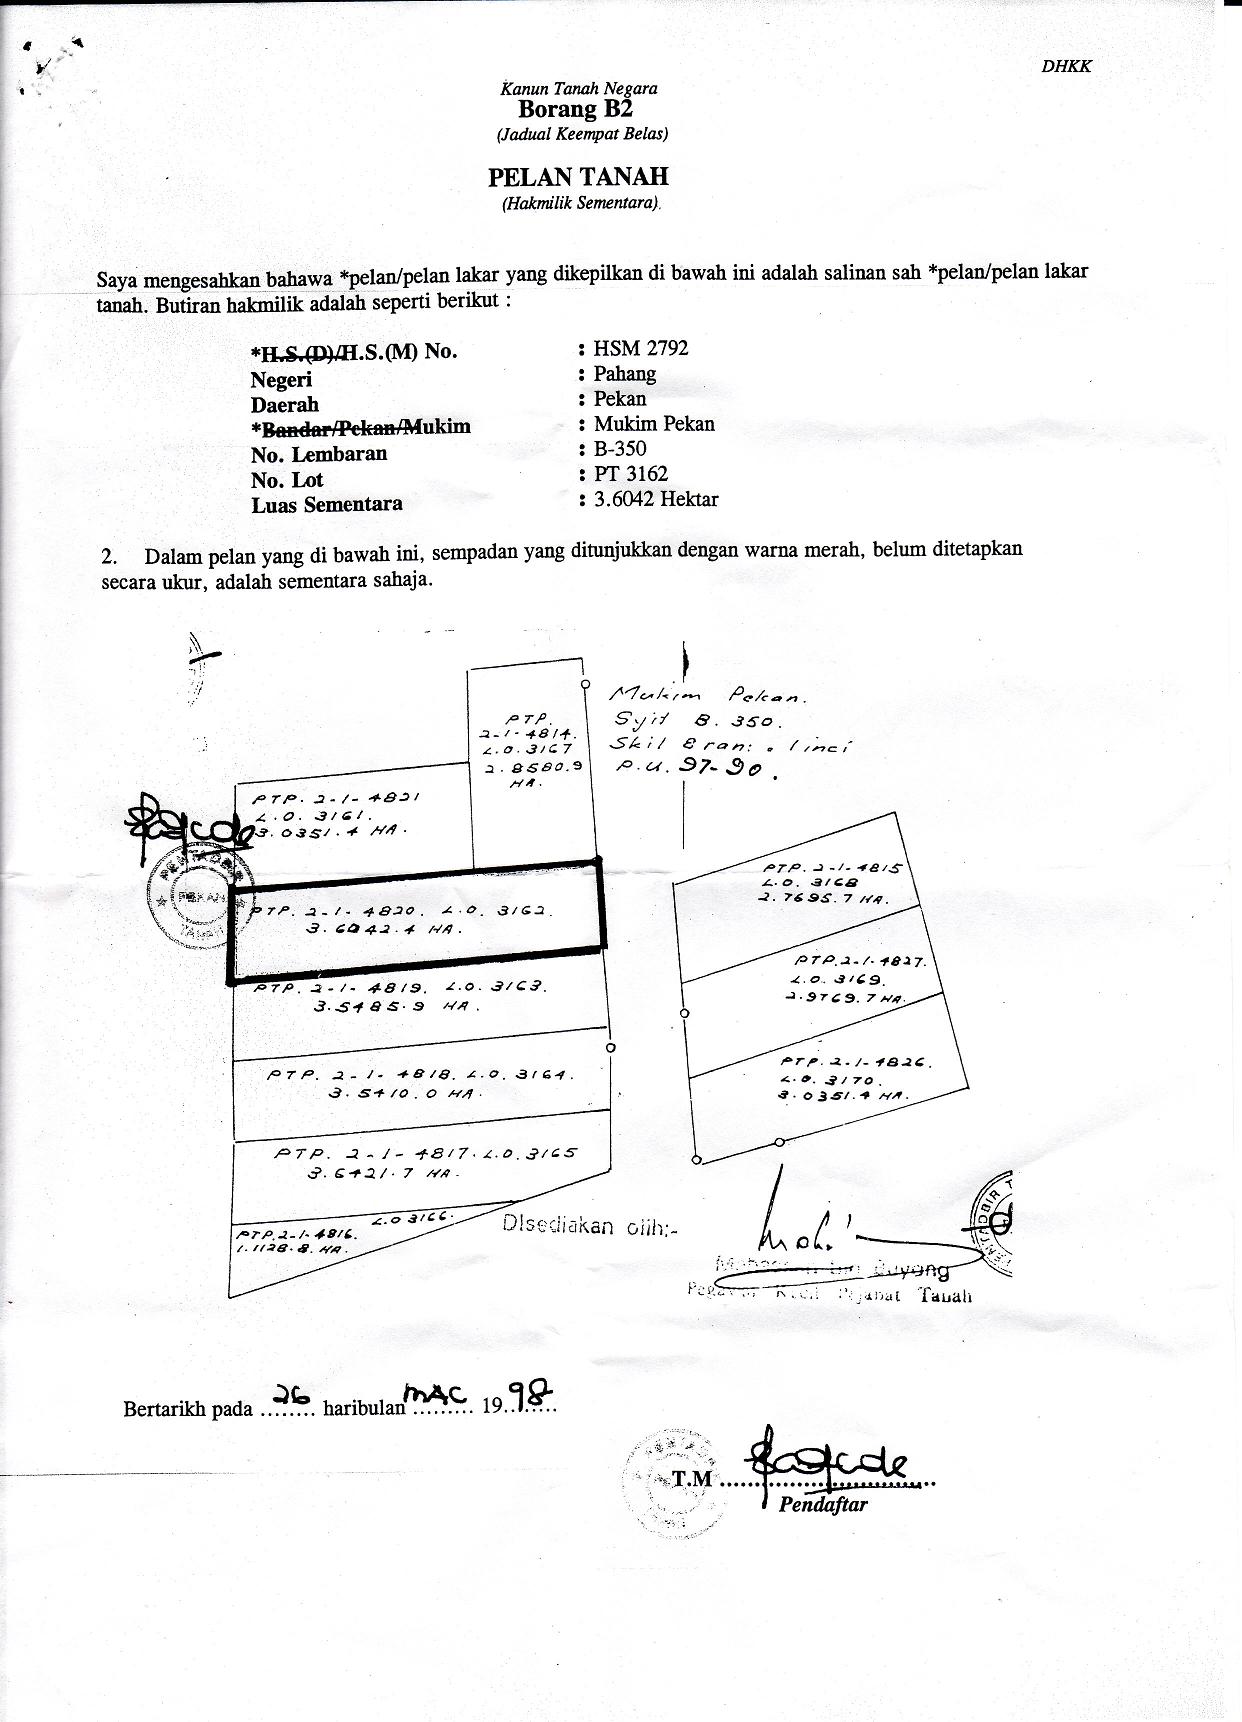 DHKK
Kanun Tanah Negara
Borang B2
(Jadual Keempat Belas)
PELAN TANAH
(Hakmilik Sementara).
Saya mengesahkan bahawa *pelan/pelan lakar yang dikepilkan di bawah ini adalah salinan sah *pelan/pelan lakar
tanah. Butiran hakmilik adalah seperti berikut :
*H.S.(D)/H.S.(M) No. : HSM 2792
Negeri : Pahang
Daerah : Pekan
*Bandar/Pekan/Mukim : Mukim Pekan
No. Lembaran : B-350
No. Lot : PT 3162
Luas Sementara : 3.6042 Hektar
2. Dalam pelan yang di bawah ini, sempadan yang ditunjukkan dengan warna merah, belum ditetapkan
secara ukur, adalah sementara sahaja.
Mukim Pekan.
Syit B. 350.
Skil 8 ran: . 1 inci
P.U. 97-90.
PTP.
2-1-4814.
L.O. 3167
2.8580.9
HA.
PTP. 2-1-4821
L.O. 3161.
3.0351.4 HA.
PENTADBIR
PEKAN
TANAH
PTP. 2-1-4820. L.O. 3162.
3.6042.4 HA.
PTP. 2-1-4819. L.O. 3163.
3.5485.9 HA.
PTP. 2-1-4818. L.O. 3164.
3.5410.0 HA.
PTP. 2-1-4817. L.O. 3165
3.6421.7 HA.
L.O 3166.
PTP. 2-1-4816.
1.1128.8. HA.
PTP. 2-1-4815
L.O. 3168
2.7695.7 HA.
PTP. 2-1-4827.
L.O. 3169.
2.9769.7 HA.
PTP. 2-1-4826.
L.O. 3170.
3.0351.4 HA.
Disediakan olih:-
bin Buyong
Pejabat Tanah
Bertarikh pada 26 haribulan MAC 1998
T.M ..............................
Pendaftar